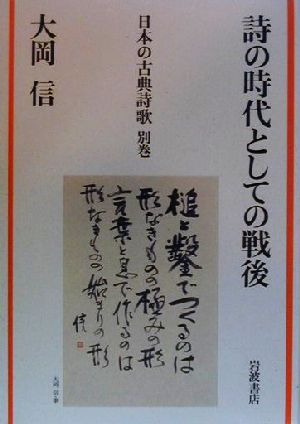 詩の時代としての戦後
日本の古典詩歌 別巻
大岡 信
槌と鑿でつくるのは
形なきものの極みの形
言葉と息で作るのは
形なきものの始まりの形
信
岩波書店